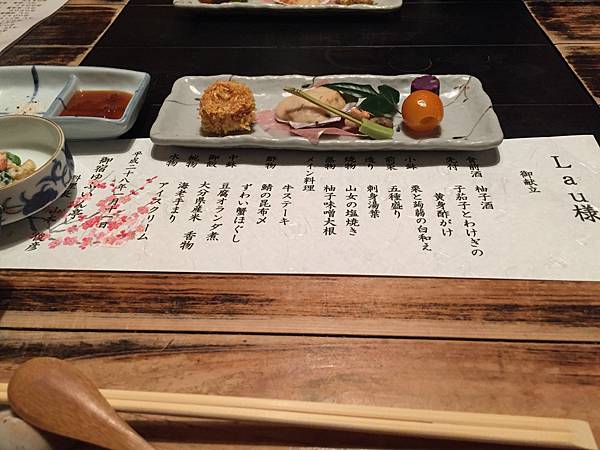 Lau様
御献立
食前酒 柚子酒
先付 子茄子とわけぎの
黄身酢がけ
小鉢 栗と蒟蒻の白和え
前菜 五種盛り
造り 刺身湯葉
焼物 山女の塩焼き
蒸物 柚子味噌大根
メイン料理
牛ステーキ
酢物 鯖の昆布〆
ずわい蟹ほぐし
中鉢 豆腐オランダ煮
御飯 大分県産米 香物
椀物 海老手まり
水物 アイスクリーム
平成二十八年一月一日
御宿 ゆふいん亭
料理長